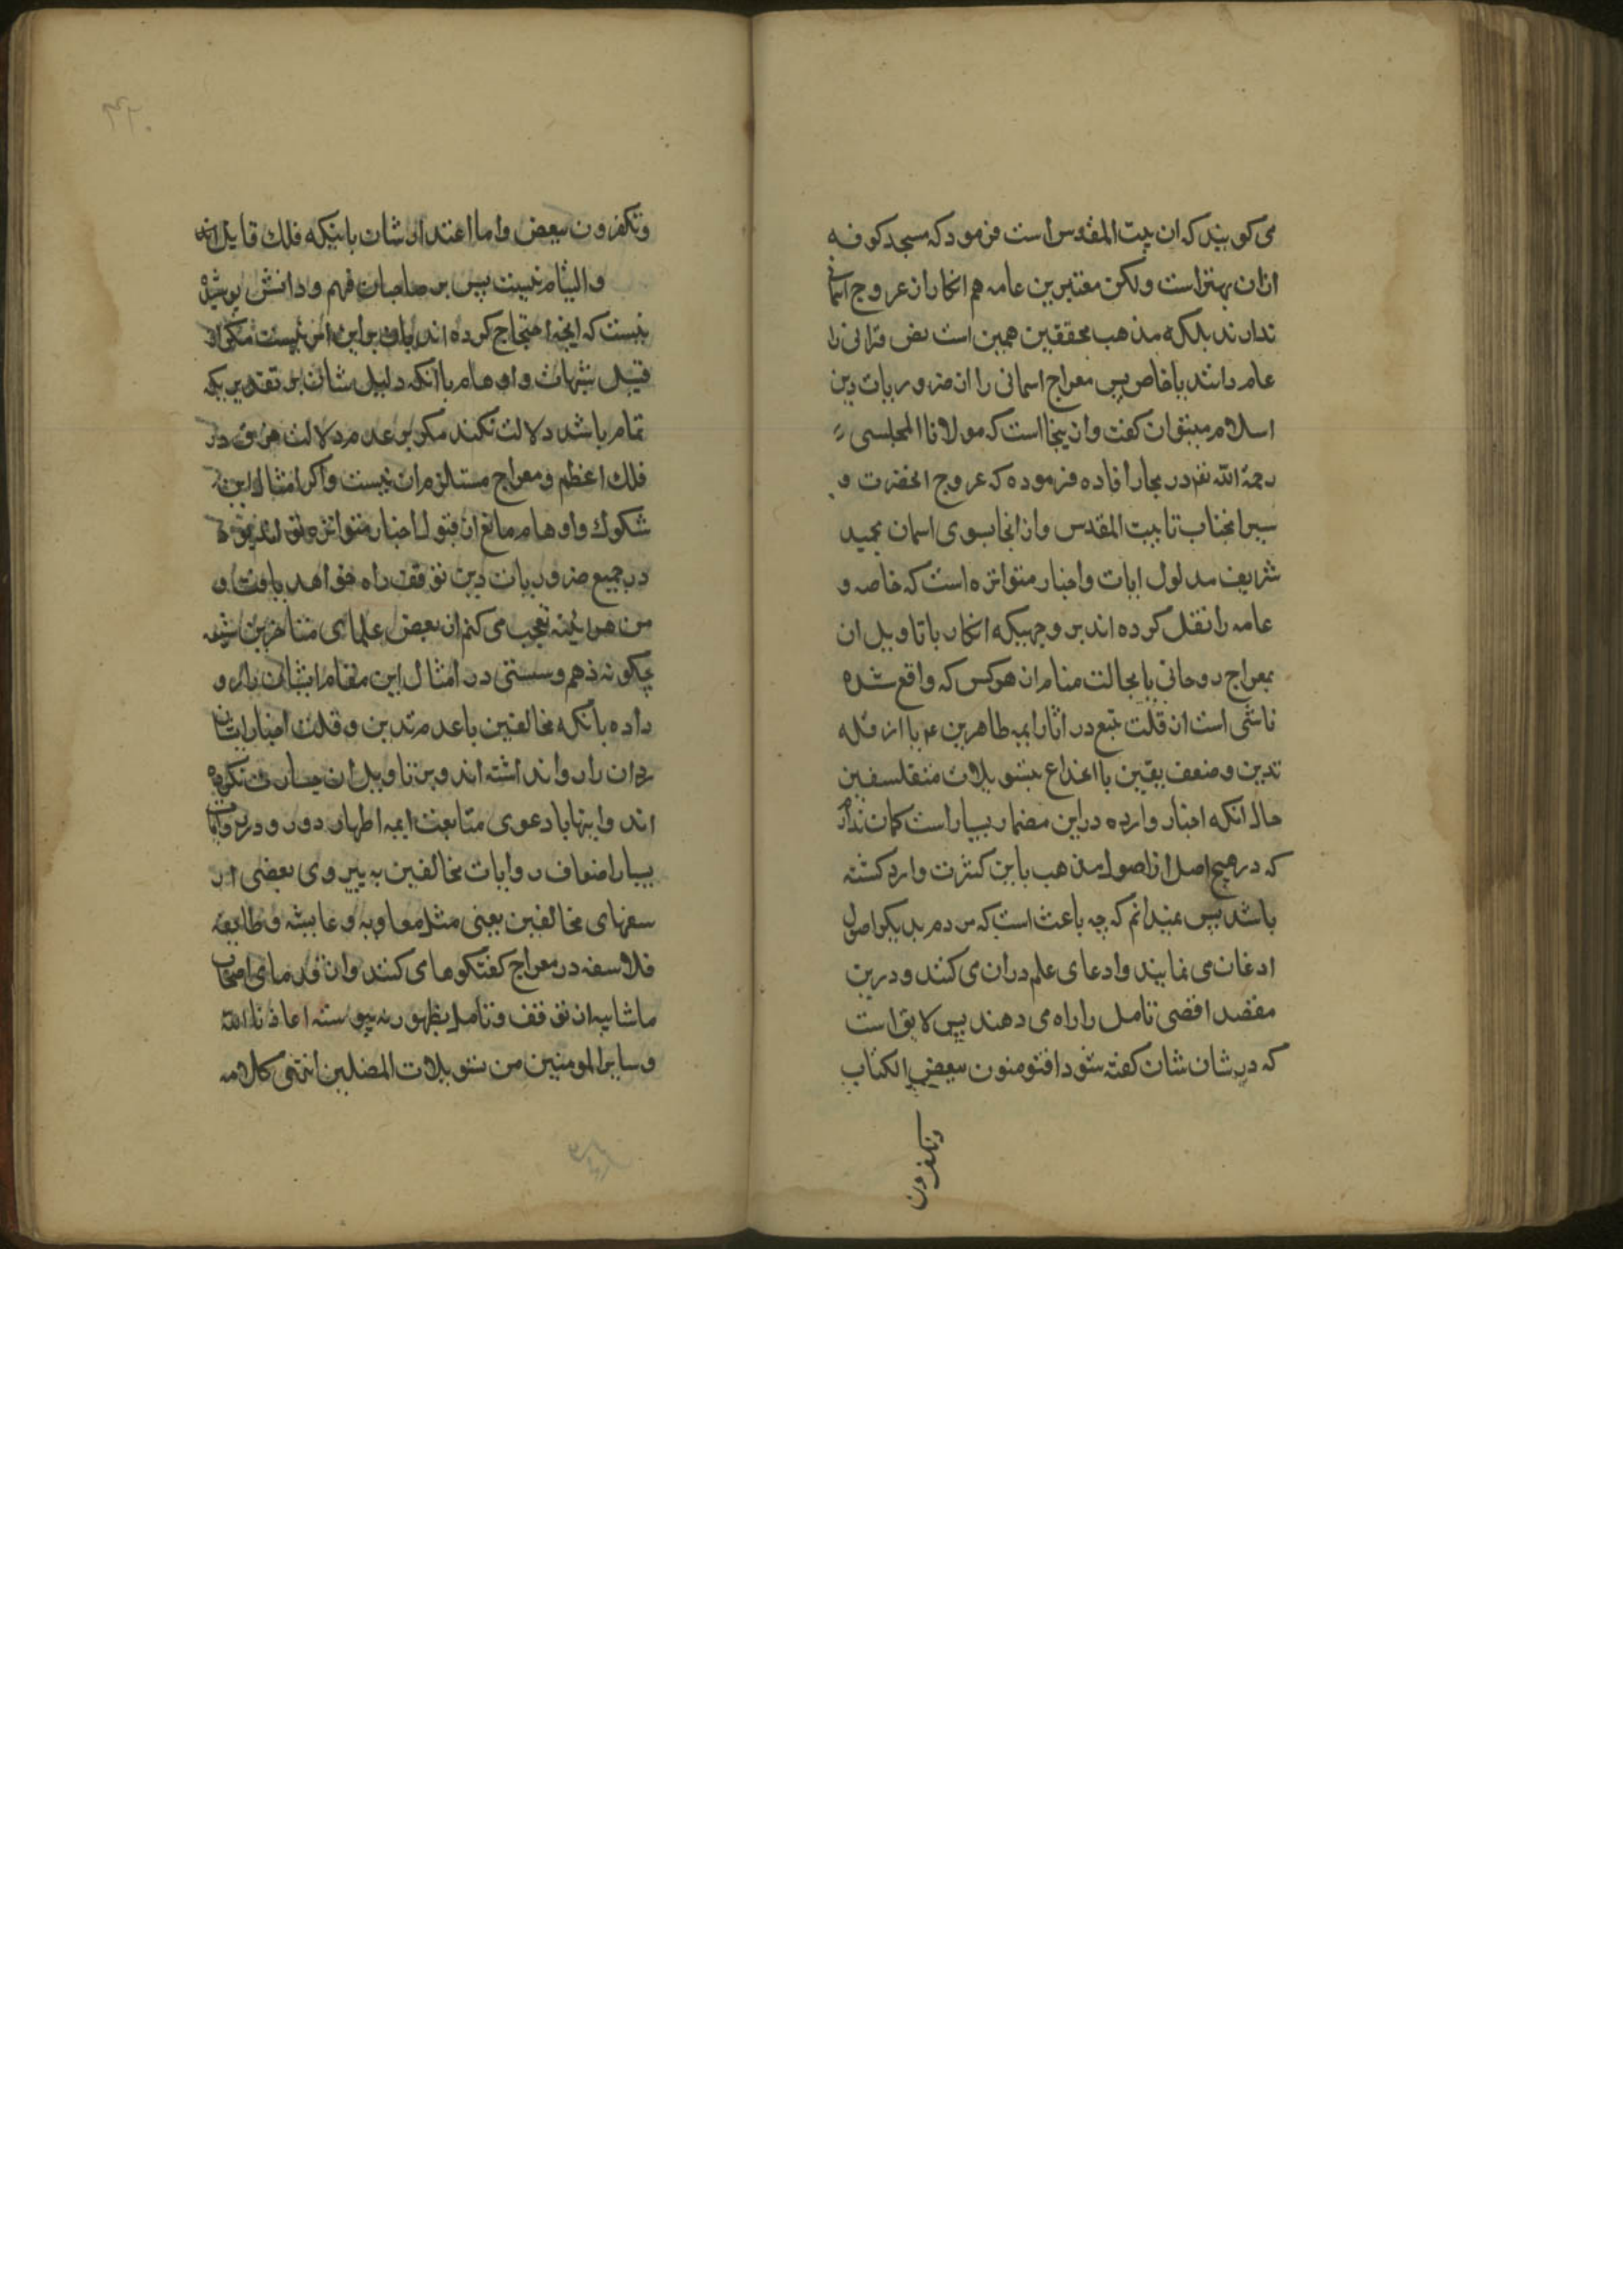 می کویند که ان بیت المقدس است فرمود که مسجد کوفه
ازان بهتر است ولکن معتبرین عامه هم انکار ان عروج اسمانی
ندارند بلکه مذهب محققین همین است نص قرانی را
عام دانند یا خاص پس معراج اسمانی را از ضروریات دین
اسلام میتوان کفت و از ینجا است که مولانا المجلسی
رحمة الله در بحار افاده فرموده که عروج انحضرت و
سیر انجناب تا بیت المقدس و از انجا بسوی اسمان بجسد
شریف مدلول ایات و اخبار متواتره است که خاصه و
عامه را نقل کرده اند بر وجهیکه انکار یا تاویل ان
بمعراج روحانی یا بحالت منام از هر کس که واقع شده
ناشی است از قلت تتبع در اثار ایمه طاهرین ع یا از قله
تدین و ضعف یقین یا انخداع بتسویلات متفلسفین
حال انکه اخبار وارده در این مضمار بسیار است کمان ندارم
که در هیچ اصل از اصول مذهب باین کثرت وارد کشته
باشد پس نمیدانم که چه باعث است که مردم بدیکر اصول
اذعان می نمایند و ادعای علم دران می کنند و درین
مقصد اقصی تامل را راه می دهند پس لایق است
که در شان شان کفته شود افتومنون ببعض الکتاب
وتکفرون
۴۲۰
وتکفرون ببعض و اما اعتذار شان باینکه فلک قابل خرق
والتیام نیست پس بر صاحبان فهم و دانش پوشیده
نیست که انچه احتجاج کرده اند باو براین امر نیست مکر از
قبیل شبهات و اوهام با انکه دلیل شان بر تقدیریکه
تمام باشد دلالت نکند مکر بر عدم دلالت خرق در
فلک اعظم و معراج مستلزم ان نیست و اکر امثال این
شکوک و اوهام مانع از قبول اخبار متواتره تواند بود
در جمیع ضروریات دین توقف راه خواهد یافت و
من هر اینه تعجب می کنم از بعض علمای متاخرین شیعه
چکونه وهم و سستی در امثال این مقام ایشان را رو
داده با انکه مخالفین با عدم تدین و قلت اخبار ایشان
رد ان را روا نداشته اند و بر تاویل ان جسارت نکرده
اند و اینها با دعوی متابعت ایمه اطهار دور و در روایات
بسیار اضعاف روایات مخالفین به پیروی بعضی از
سفهای مخالفین یعنی مثل معاویه و عایشه و طایفه
فلاسفه در معراج کفتکوها می کنند و از قدمای اصحاب
ما شایبه از توقف و تامل بظهور نه پیوسته اعاذنا الله
و سایر المومنین من تسویلات المضلین انتهی کلامه